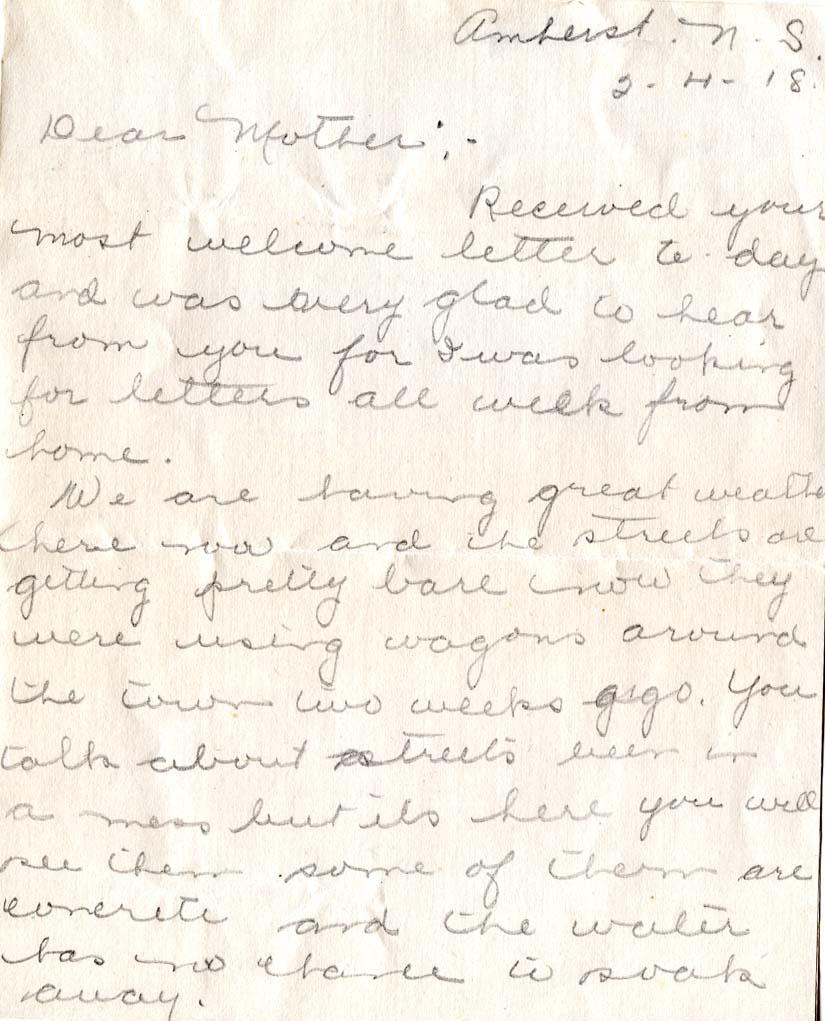 Amherst. N. S.
2-4-18.
Dear Mother;-
Received your
most welcome letter to day
and was very glad to hear
from you for I was looking
for letters all week from
home.
We are having great weathe
here now and the streets are
getting pretty bare now they
were using wagons around
the town two weeks ago. You
talk about streets been in
a mess but its here you will
see them some of them are
concrete and the water
has no chance to soak
away.